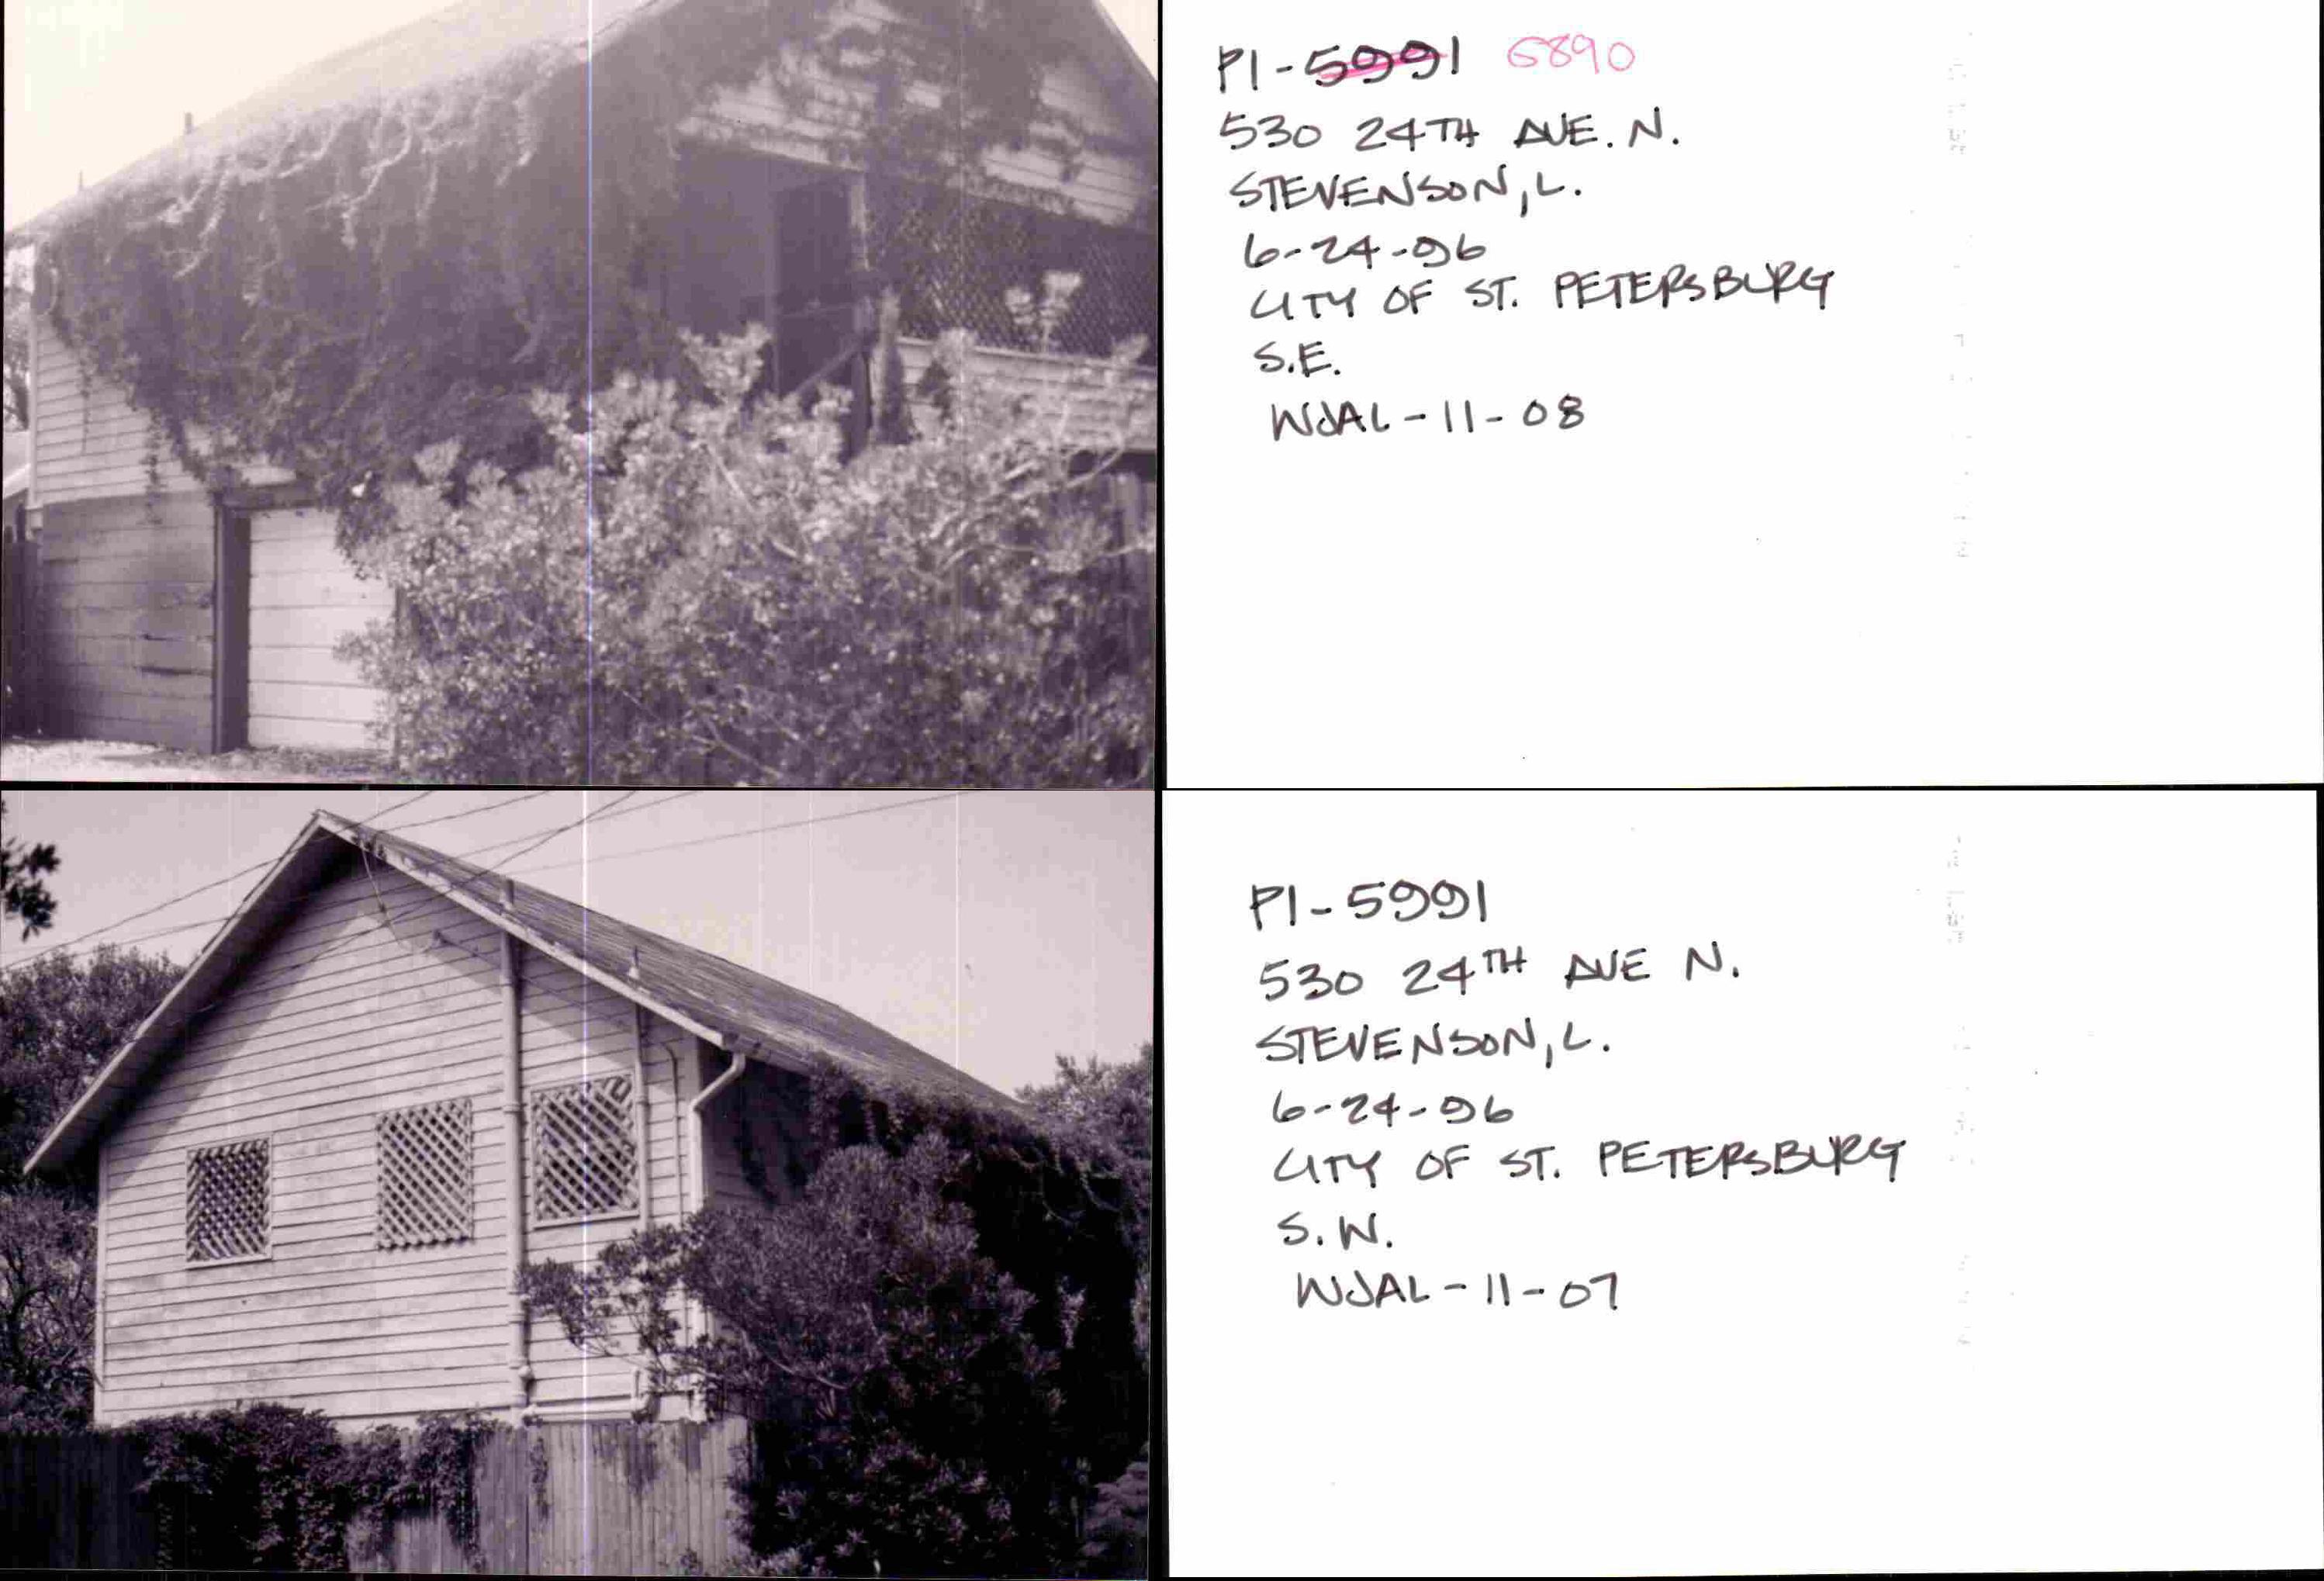 PI-5991 5890
530 24TH AVE. N.
STEVENSON, L.
6-24-96
CITY OF ST. PETERSBURG
S.E.
WJAL-11-08
PI-5991
530 24TH AVE N.
STEVENSON, L.
6-24-96
CITY OF ST. PETERSBURG
S.W.
WJAL-11-07